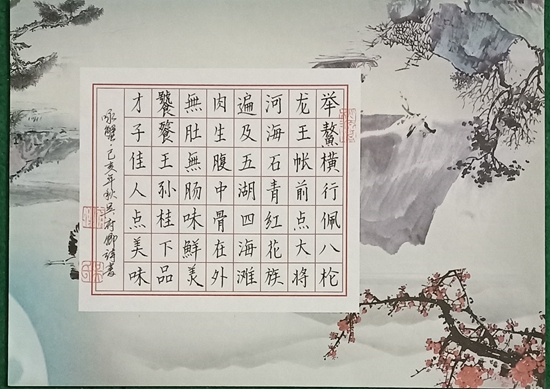 举螯横行佩八枪
龙王帐前点大将
河海石青红花族
遍及五湖四海滩
肉生腹中骨在外
無肚無肠味鮮美
饕餮王孙桂下品
才子佳人点美味
咏蟹·己亥年秋